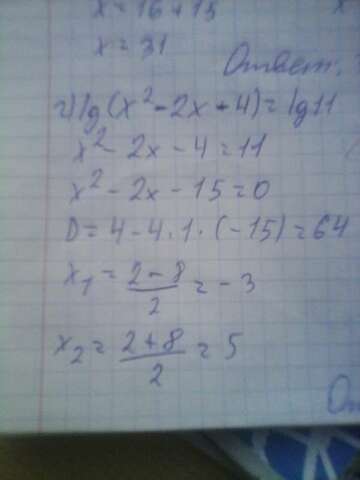 x = 16 + 15
x = 31
Ответ:
г) lg(x² - 2x - 4) = lg11
x² - 2x - 4 = 11
x² - 2x - 15 = 0
D = 4 - 4 · 1 · (-15) = 64
x₁ = (2 - 8)/2 = -3
x₂ = (2 + 8)/2 = 5